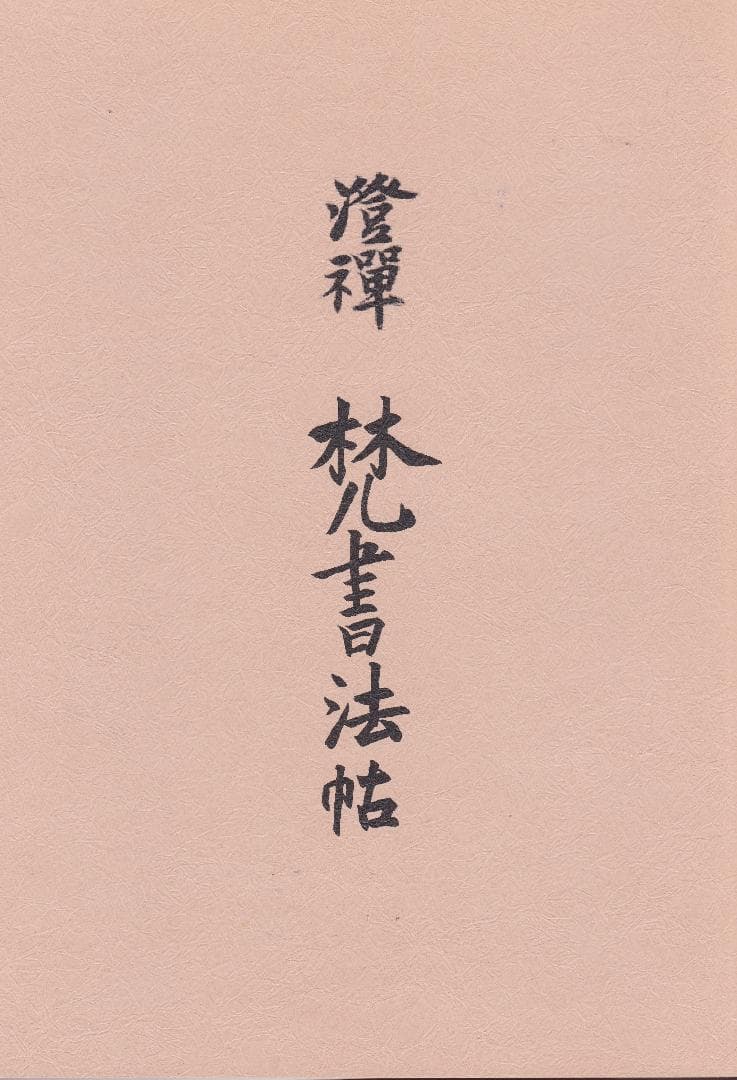 澄禪 梵書法帖